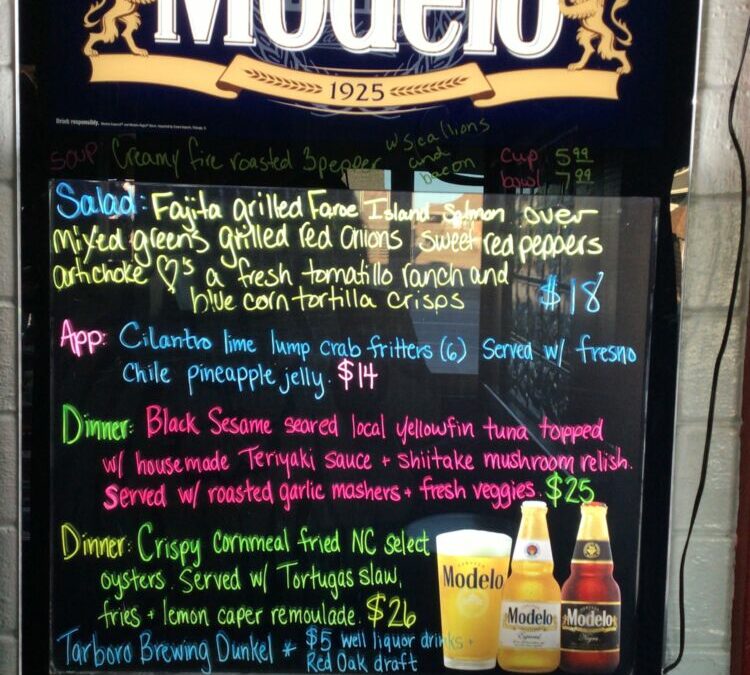 Modelo
1925
Drink responsibly.
Soup: Creamy fire roasted 3 pepper w/ scallions and bacon cup 5.99 bowl 7.99
Salad: Fajita grilled Faroe Island Salmon over
mixed greens grilled red onions sweet red peppers
artichoke ♡'s a fresh tomatillo ranch and
blue corn tortilla crisps $18
App: Cilantro lime lump crab fritters (6) Served w/ fresno
Chile pineapple jelly. $14
Dinner: Black Sesame seared local yellowfin tuna topped
w/ housemade Teriyaki sauce + shiitake mushroom relish.
Served w/ roasted garlic mashers + fresh veggies. $25
Dinner: Crispy cornmeal fried NC select
oysters. Served w/ Tortugas slaw,
fries + lemon caper remoulade. $26
Tarboro Brewing Dunkel * $5 well liquor drinks +
Red Oak draft
Modelo
Modelo
Especial
Modelo
Negra